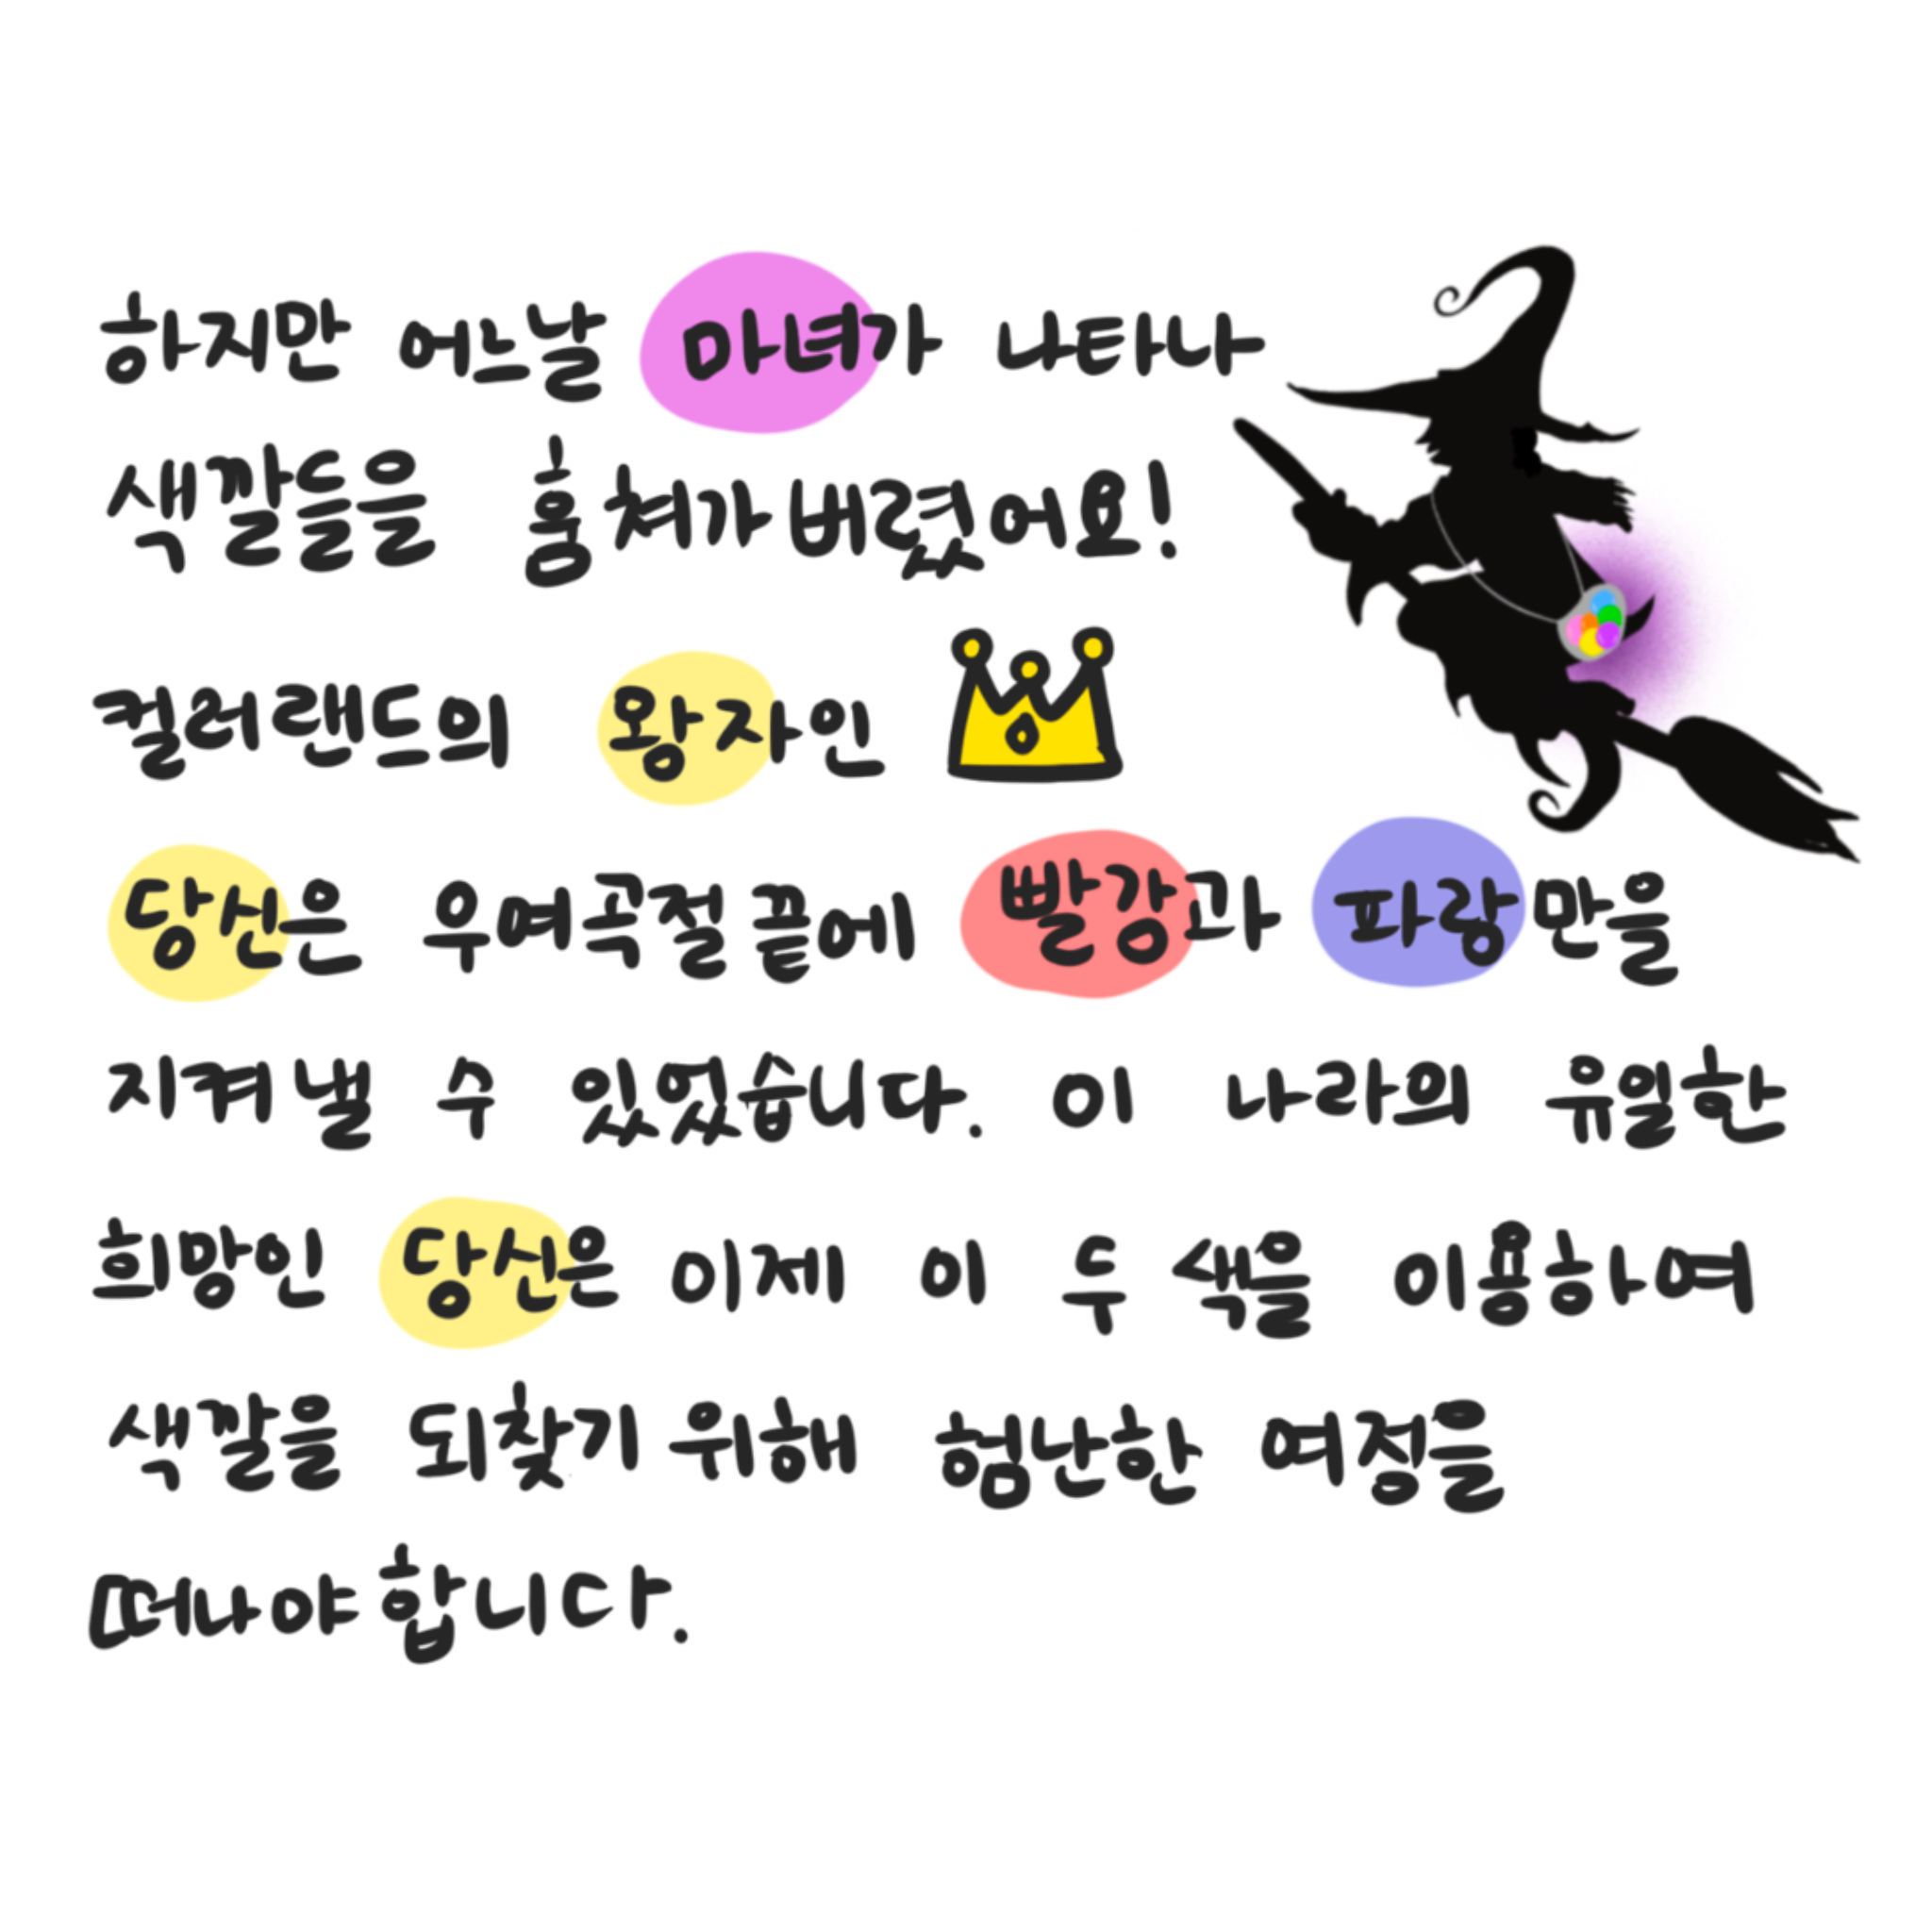 하지만 어느날 마녀가 나타나
색깔들을 훔쳐가버렸어요!
컬러랜드의 왕자인
당신은 우여곡절끝에 빨강과 파랑만을
지켜낼 수 있었습니다. 이 나라의 유일한
희망인 당신은 이제 이 두 색을 이용하여
색깔을 되찾기위해 험난한 여정을
떠나야합니다.